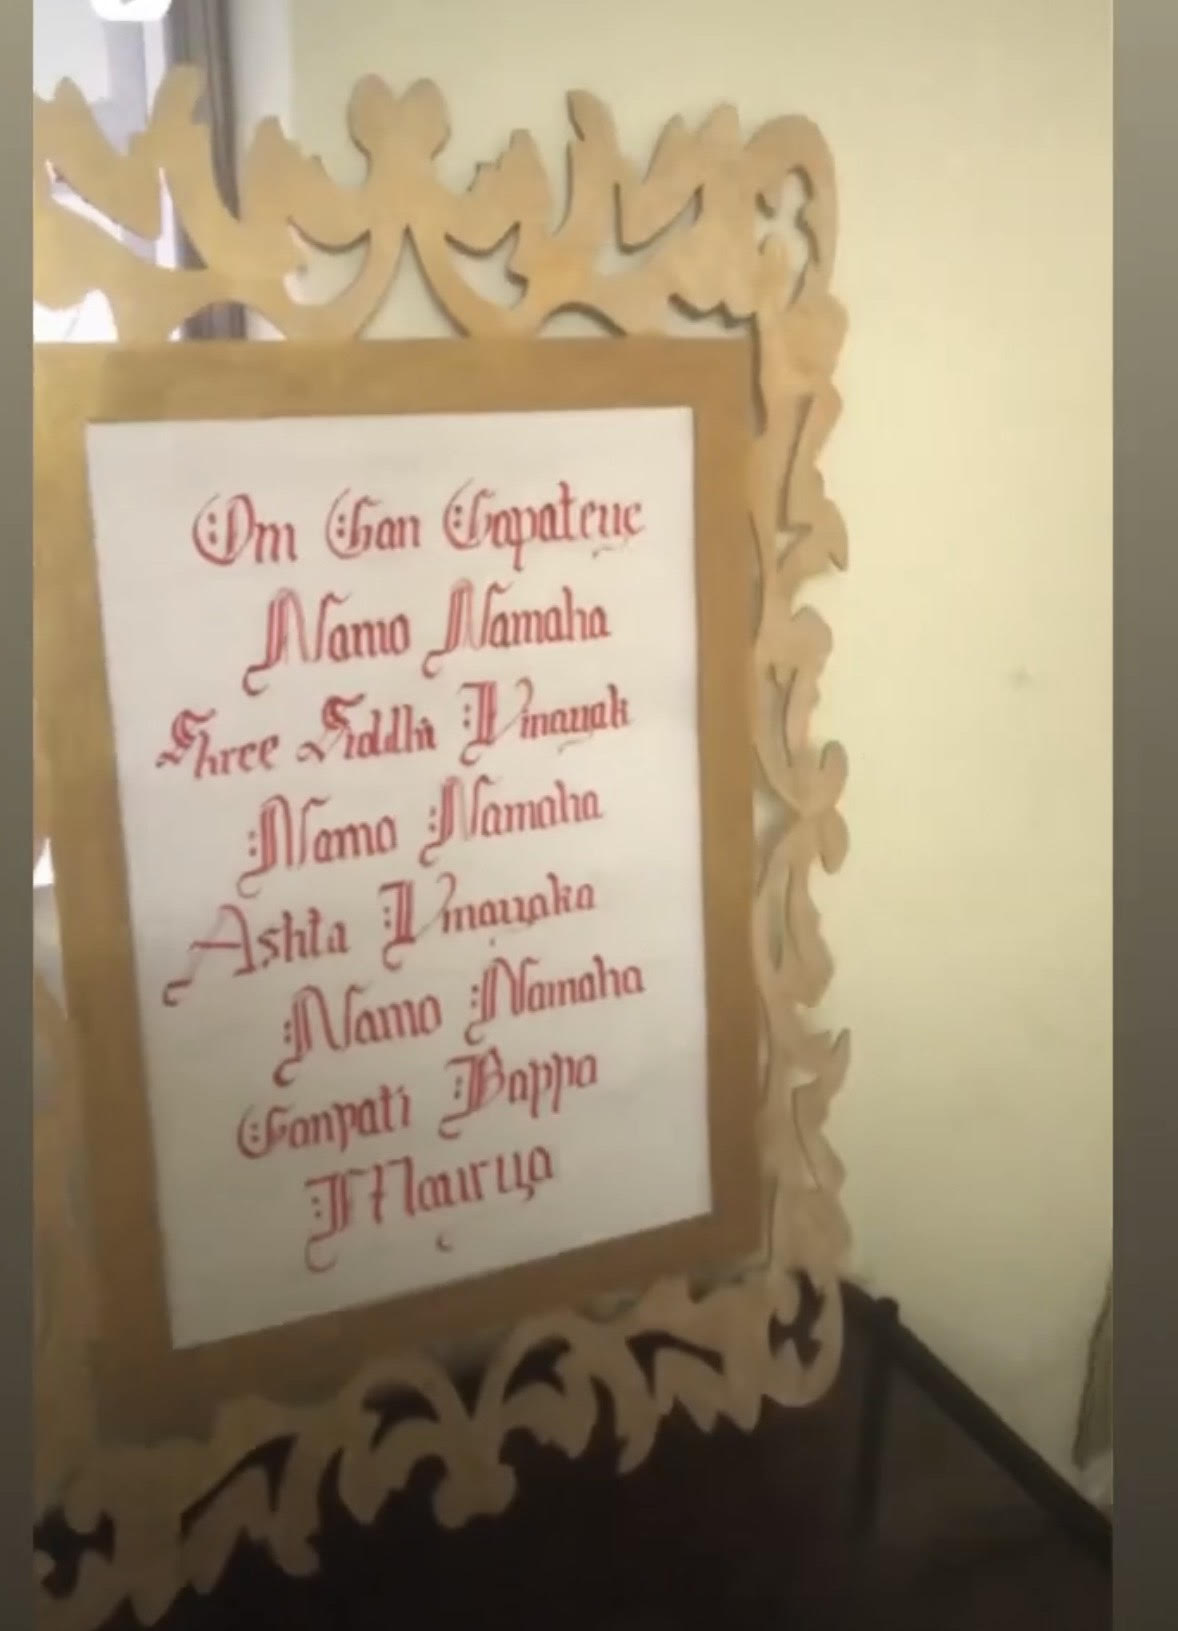 Om Gan Gapateye
Namo Namaha
Shree Siddhi Vinayak
Namo Namaha
Ashta Vinayaka
Namo Namaha
Ganpati Bappa
Maurya